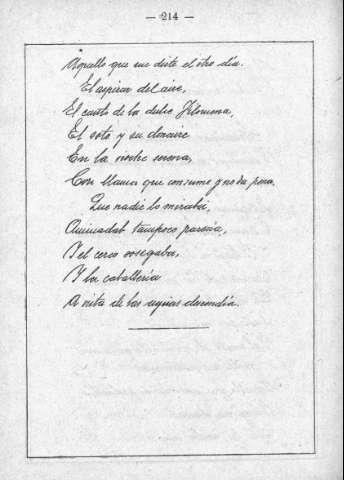 — 214 —
Aquello que me diste el otro día.
El aspirar del aire,
El canto de la dulce Filomena,
El soto y su donaire
En la noche serena,
Con llama que consume y no da pena.
Que nadie lo miraba,
Aminadab tampoco parecía,
Y el cerco sosegaba,
Y la caballería
A vista de las aguas descendía.